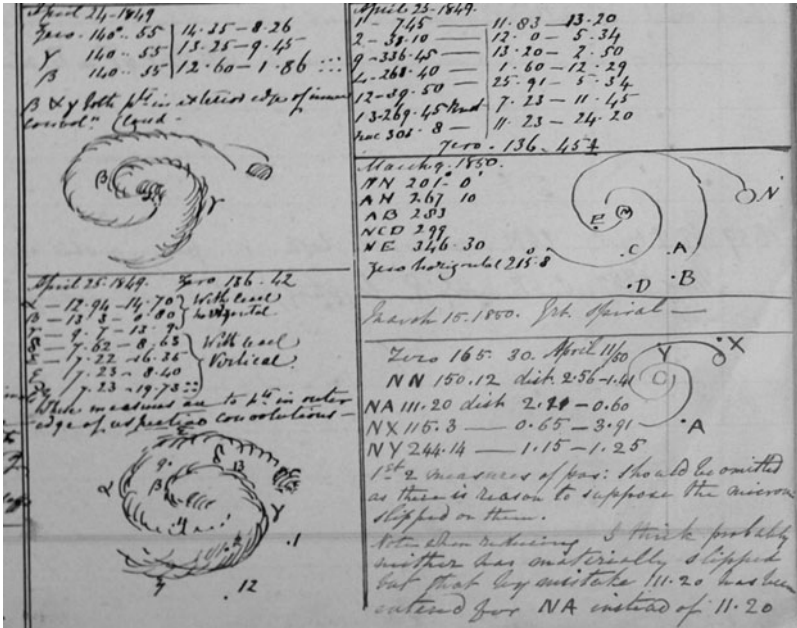 April 24-1849
Zero. 140°. 55 14.35-8.26
γ 140.. 55 13.25-9.45
β 140.. 55 12.60-1.86
β & γ both pts in exterior edge of inner
convoln
β
γ
April 25. 1849. Zero 136. 42
α - 12.94-14.70 With level
β - 13.3 - horizontal
With level
7.62 - 8.63 Vertical.
7.22 -16.35
7.23 - 8.40
7.23 -19.73
These measures are to pts in outer
edge of respective convolutions-
α
β
β
γ
.1
. 12
April 25-1849.
1 - 7.45 — 11.83 - 13.20
2 - 38.10 — 12.0 - 5.34
9 - 336.45 — 13.20 - 2.50
4 - 268.40 — 1.60 - 12.29
12 - 39.50 — 25.91 - 5.34
13 - 269.45 7.23 - 11.45
nuc 305. 8 — 11.23 - 24.20
Zero. 136. 45
March 9. 1850.
NN 201° 0'
AN 267 10
AB 283
NCD 299
NE 346.30
Zero horizontal 215.8
N
E
N
.C
.A
.D
.B
March 15. 1850. Grt. Spiral —
Zero 165. 30. April 11/50
NN 150.12 dist. 2.56-1.41
NA 111.20 dist 0.60
NX 115.3 — 0.65 - 3.91
NY 244.14 — 1.15 - 1.25
Y
X
A
1st 2 measures of pos: should be omitted
as there is reason to suppose the microm
slipped on them.
Note when reducing I think probably
neither has materially slipped
but that by mistake 111.20 has been
entered for NA instead of 11.20